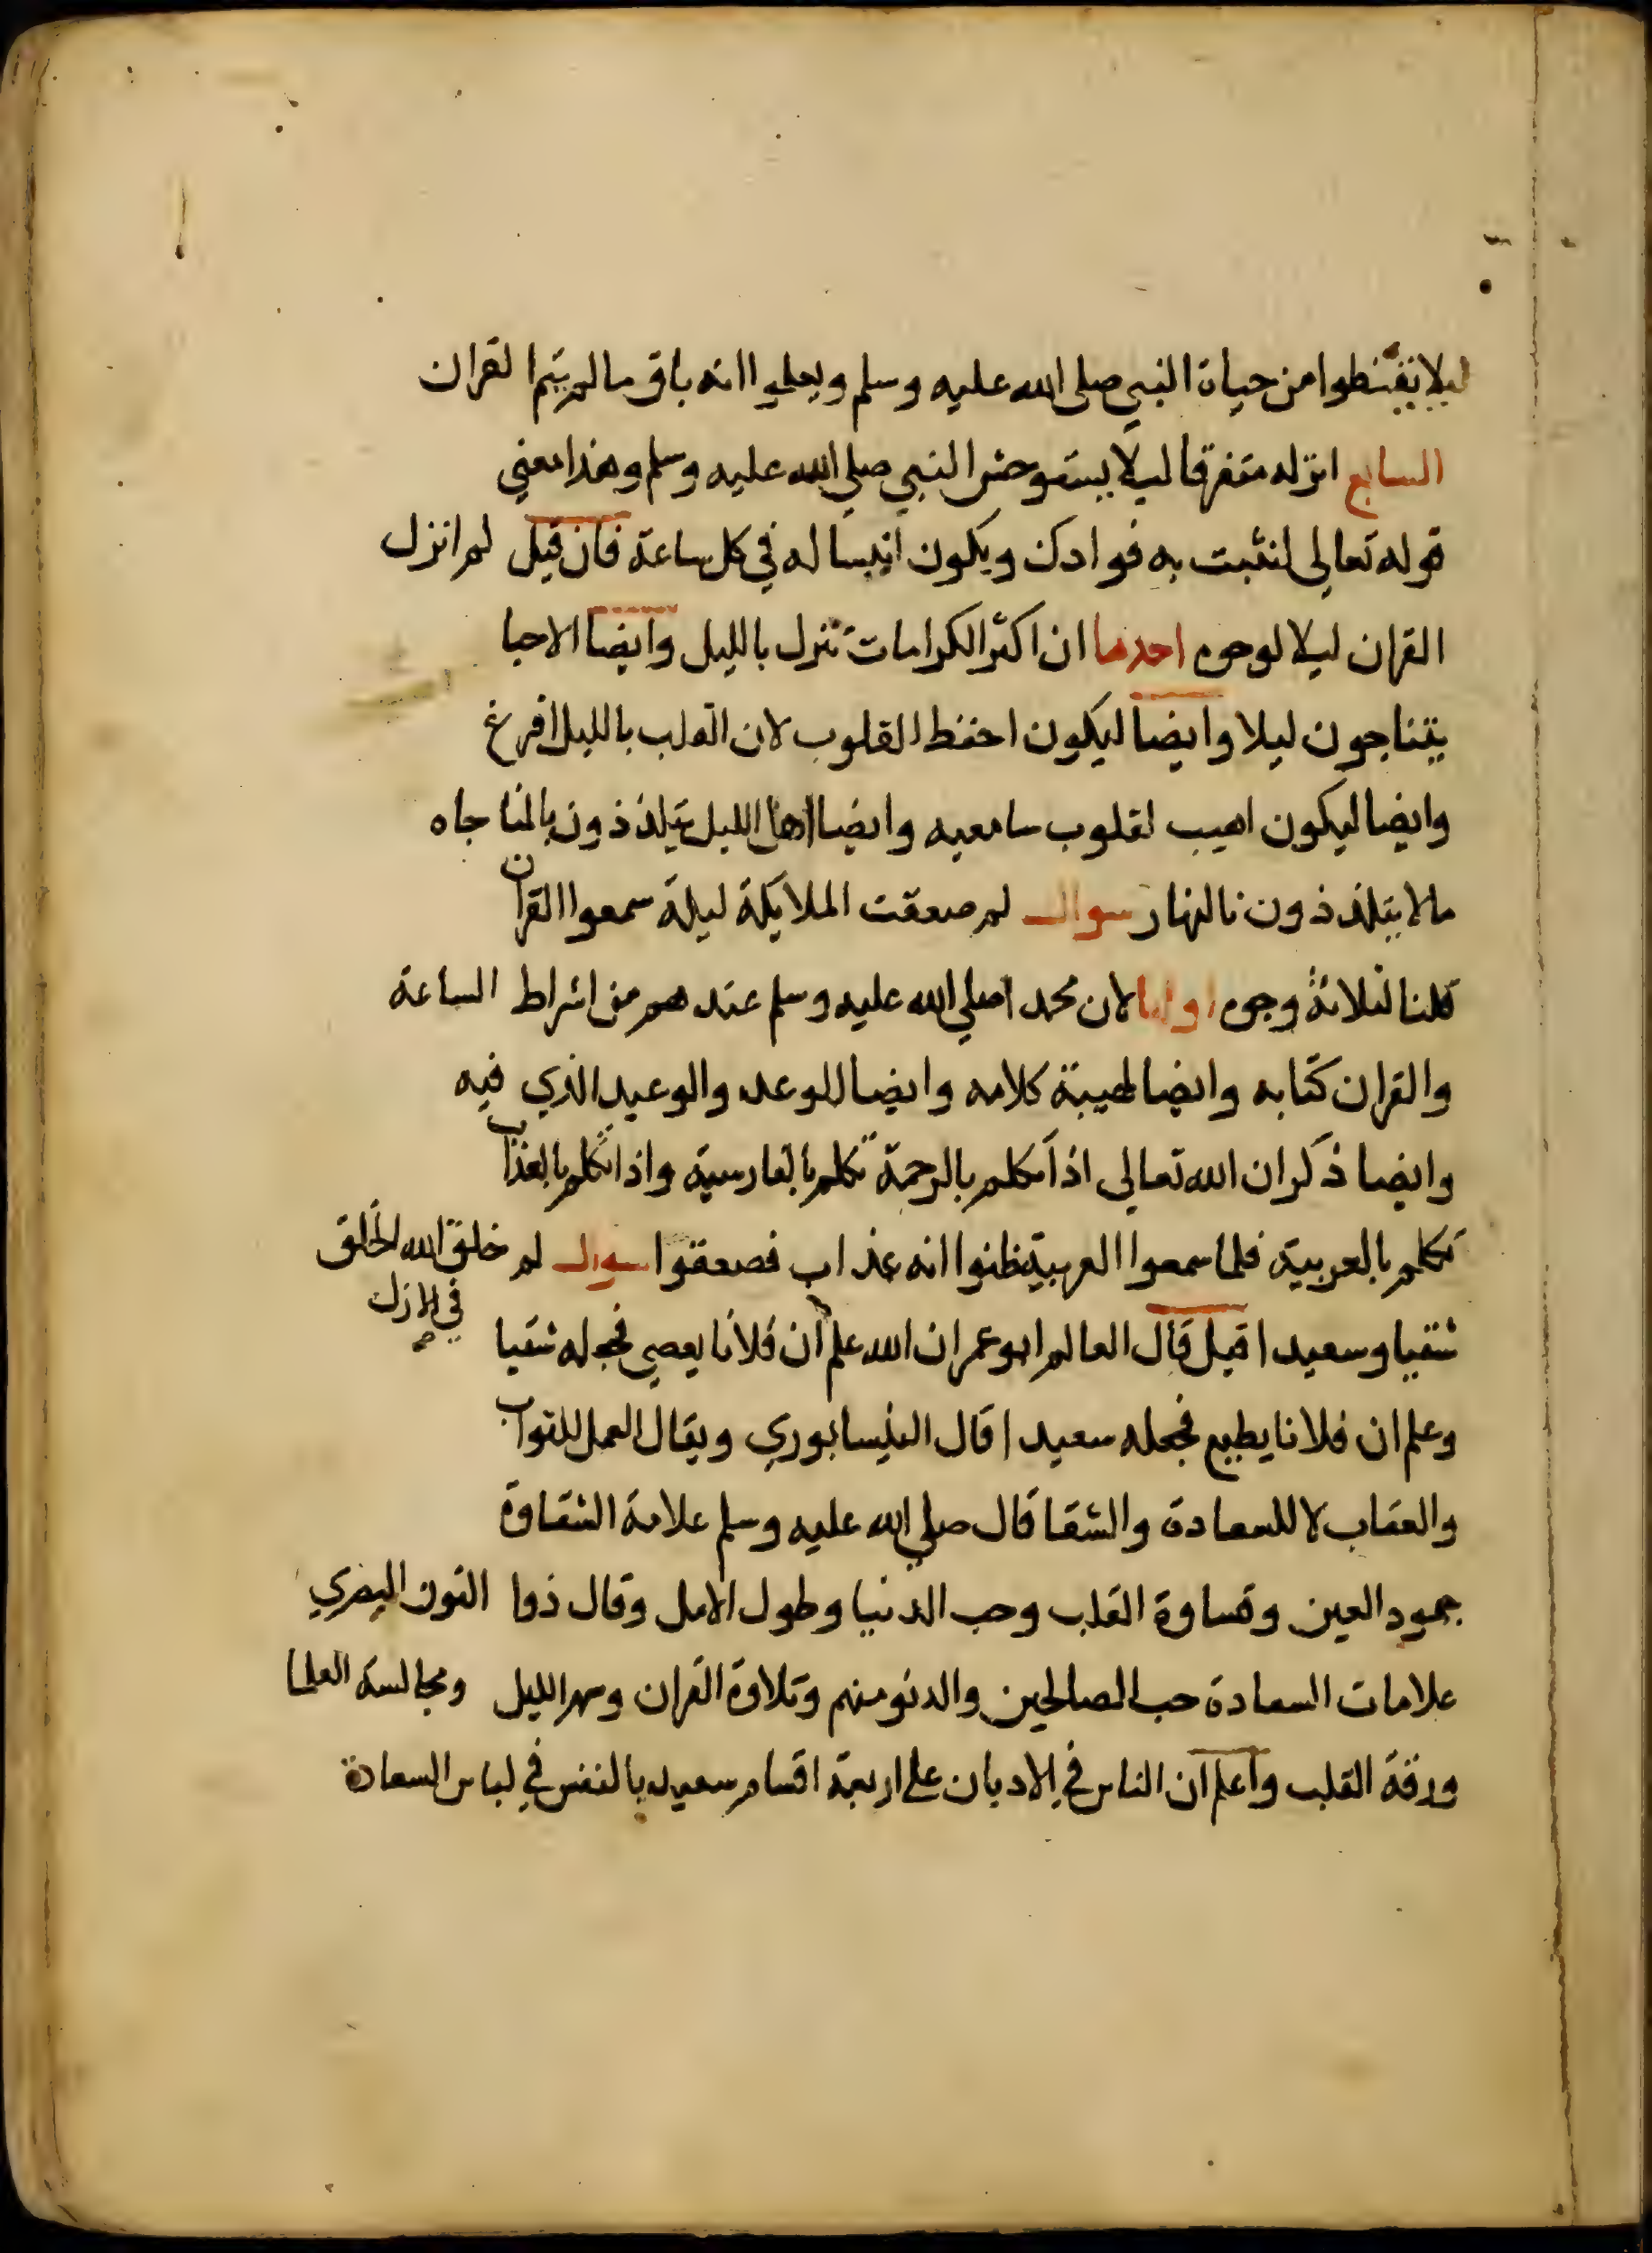 ليلا يقنطوا من حياة النبي صلى الله عليه وسلم ويعلموا انه باق ما لم يتم القران
السابع انزله متفرقا ليلا يستوحش النبي صلي الله عليه وسلم وهذا معني
قوله تعالي لنثبت به فوادك ويكون انيسا له في كل ساعة فان قيل لم انزل
القران ليلا لوجوه احدها ان اكثر الكرامات تنزل بالليل وايضا الاحبا
يتناجون ليلا وايضا ليكون احفظ القلوب لان القلب بالليل افرغ
وايضا ليكون اهيب لقلوب سامعيه وايضا اهل الليل يتلذذون بالمناجاه
ما لا يتلذذون بالنهار سوال لم صعقت الملايكة ليلة سمعوا القران
قلنا لثلاثة وجوه اولها لان محمدا صلي الله عليه وسلم عندهم من اشراط الساعة
والقران كتابه وايضا لهيبة كلامه وايضا للوعد والوعيد الذي فيه
وايضا ذكر ان الله تعالي اذا تكلم بالرحمة تكلم بالفارسية واذا تكلم بالعذاب
تكلم بالعربية فلما سمعوا العربية ظنوا انه عذاب فصعقوا سوال لم خلق الله الخلق
في الازل
شقيا وسعيدا قيل قال العالم ابو عمران الله علم ان فلانا يعصي فجعله شقيا
وعلم ان فلانا يطيع فجعله سعيدا قال النيسابوري ويقال العمل للثواب
والعقاب لا للسعادة والشقا قال صلي الله عليه وسلم علامة الشقاوة
جمود العين وقساوة القلب وحب الدنيا وطول الامل وقال ذوا النون المصري
علامات السعادة حب الصالحين والدنو منهم وتلاوة القران وسهر الليل ومجالسة العلما
ورقة القلب واعلم ان الناس في الاديان علي اربعة اقسام سعيد بالنفس في لباس السعادة